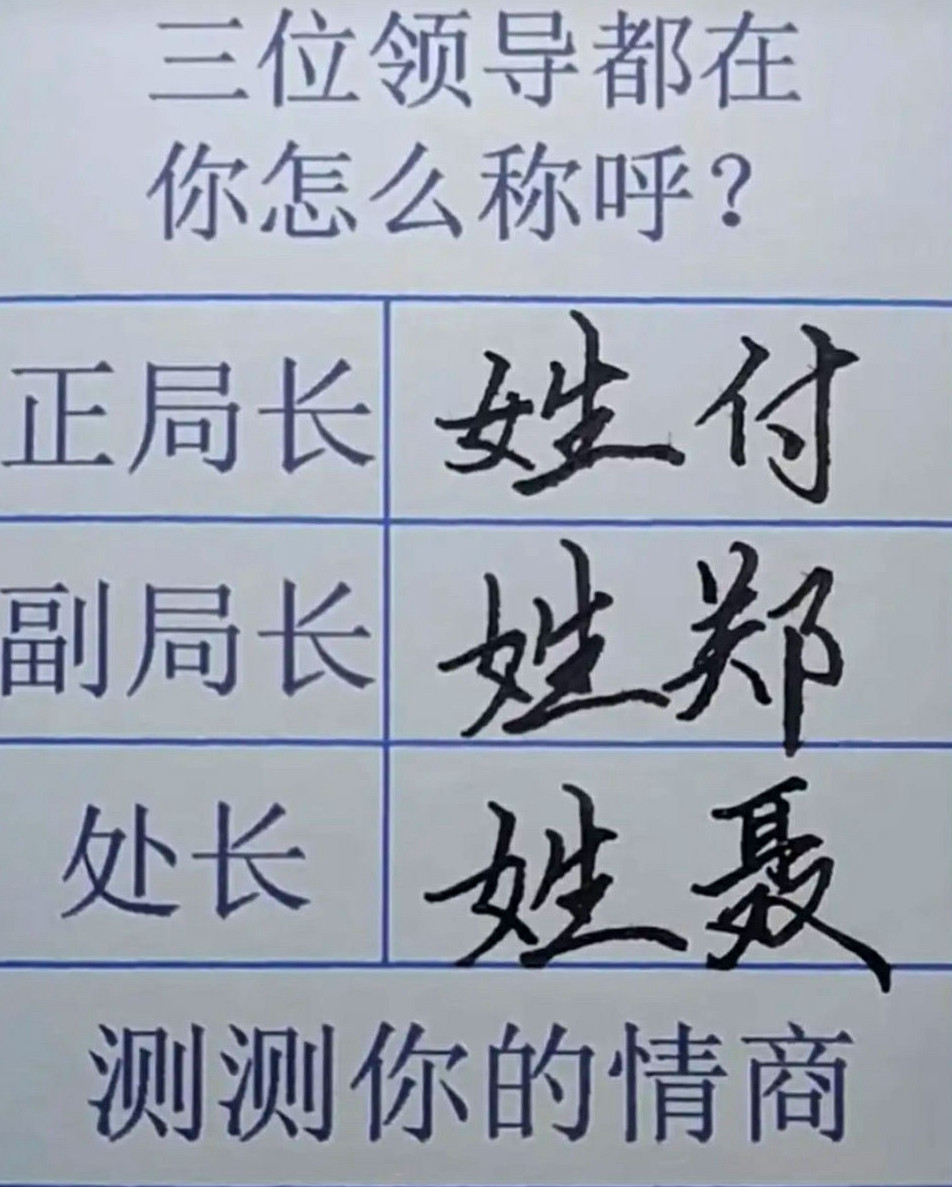 三位领导都在
你怎么称呼？
正局长 姓付
副局长 姓郑
处长 姓聂
测测你的情商